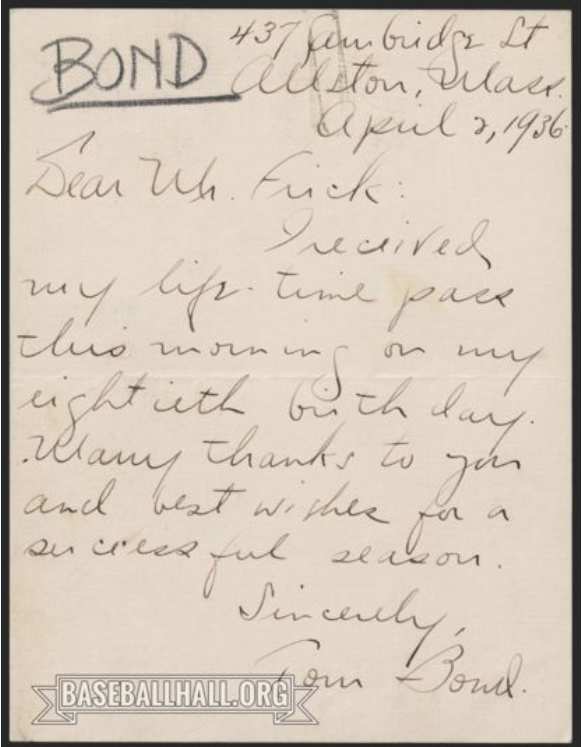 BOND
437 Cambridge St
Allston, Mass.
April 2, 1936
Dear Mr. Frick:
I received
my life-time pass
this morning on my
eightieth birthday.
Many thanks to you
and best wishes for a
successful season.
Sincerely,
Tom Bond.
BASEBALLHALL.ORG